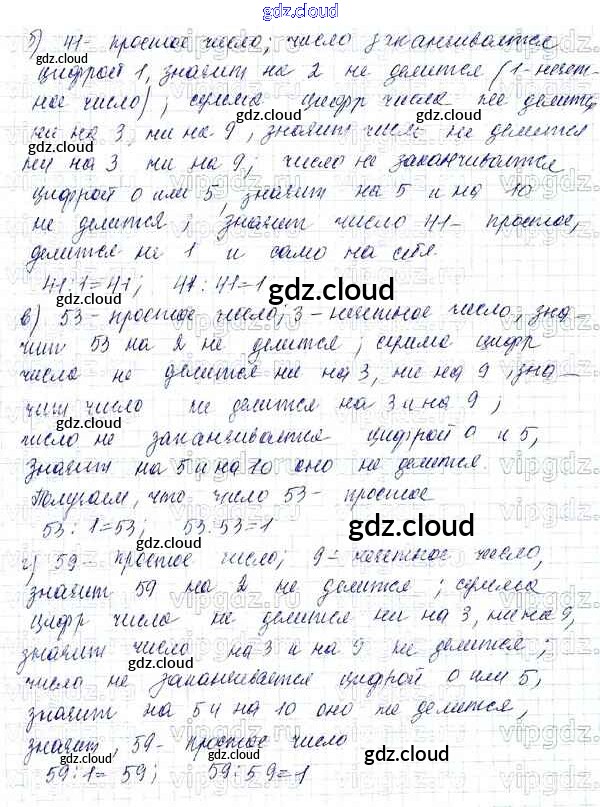 gdz.cloud
б) 41 - простое число; число заканчивается
цифрой 1, значит на 2 не делится (1 - нечет-
ное число); сумма цифр числа не делится
ни на 3, ни на 9, значит число не делится
ни на 3 ни на 9; число не заканчивается
цифрой 0 или 5, значит на 5 и на 10
не делится; значит число 41 - простое,
делится на 1 и само на себя.
41:1=41; 41:41=1
в) 53 - простое число; 3 - нечетное число, зна-
чит 53 на 2 не делится; сумма цифр
числа не делится ни на 3, ни на 9, зна-
чит число не делится на 3 и на 9;
число не заканчивается цифрой 0 и 5,
значит на 5 и на 10 оно не делится.
Получаем, что число 53 - простое
53:1=53; 53:53=1
г) 59 - простое число; 9 - нечетное число,
значит 59 на 2 не делится; сумма
цифр числа не делится ни на 3, ни на 9,
значит число на 3 и на 9 не делится;
число не заканчивается цифрой 0 или 5,
значит на 5 и на 10 оно не делится,
значит, 59 - простое число
59:1=59; 59:59=1